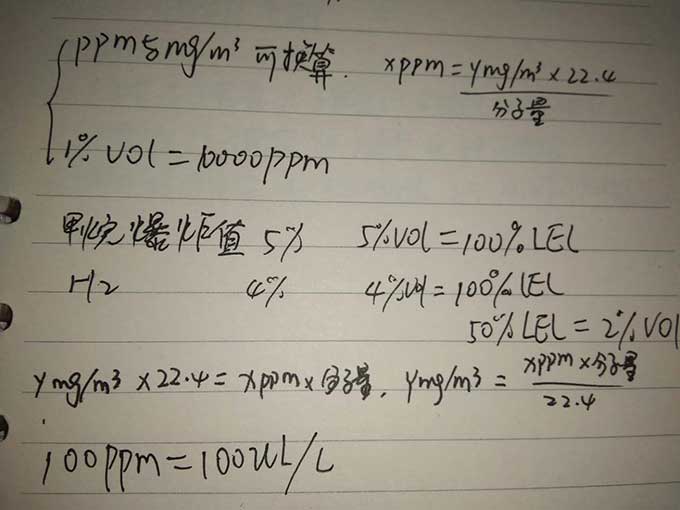 ppm与mg/m³可换算. xppm = ymg/m³ × 22.4 / 分子量
1% VOl = 10000ppm
甲烷爆炸值 5% 5%VOl = 100% LEL
H2 4% 4%Vol = 100% LEL
50% LEL = 2% VOl
ymg/m³ × 22.4 = xppm × 分子量, ymg/m³ = xppm × 分子量 / 22.4
100ppm = 100uL/L